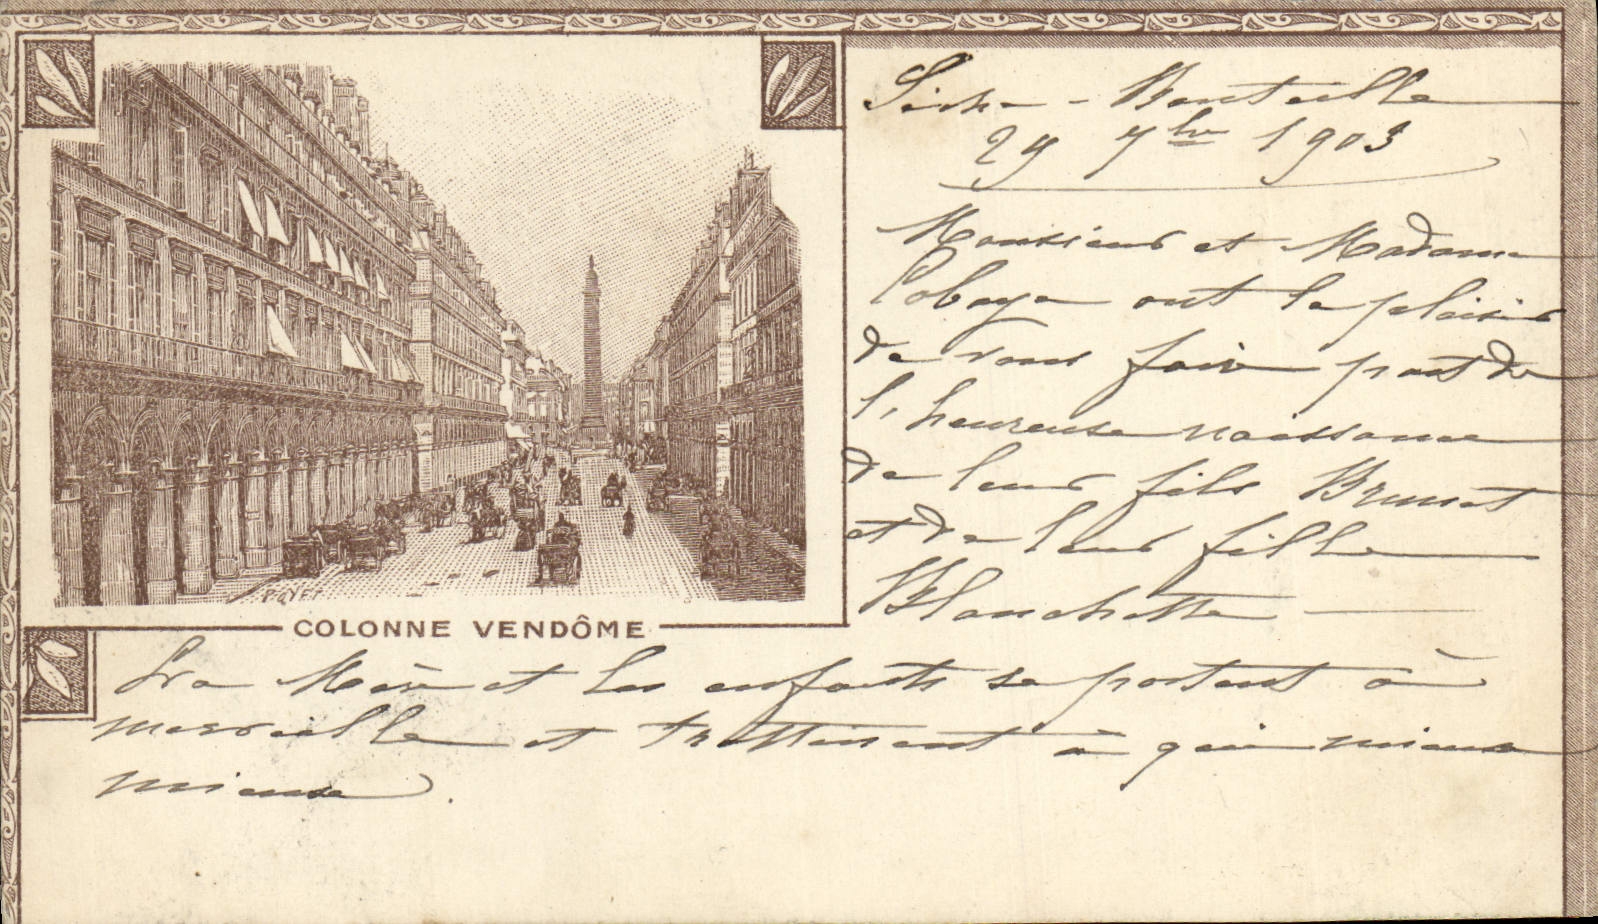 Sèche-Bouteille
29 7bre 1903
Monsieur et Madame
Cobaye ont le plaisir
de vous faire part de
l'heureuse naissance
de leur fils Brunot
et de leur fille
Blanchette
La Mère et les enfants se portent à
merveille et trottinent à qui mieux
mieux.
PoyeT
COLONNE VENDÔME